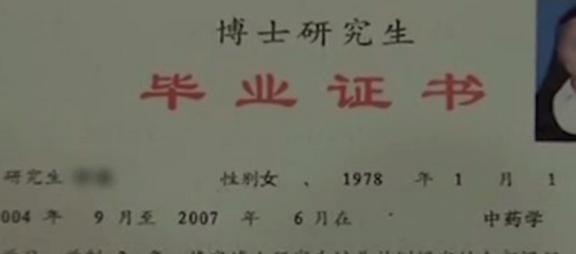 博士研究生
毕业证书
研究生 性别女 、 1978 年 1 月 1
004 年 9 月至 2007 年 6 月在 中药学